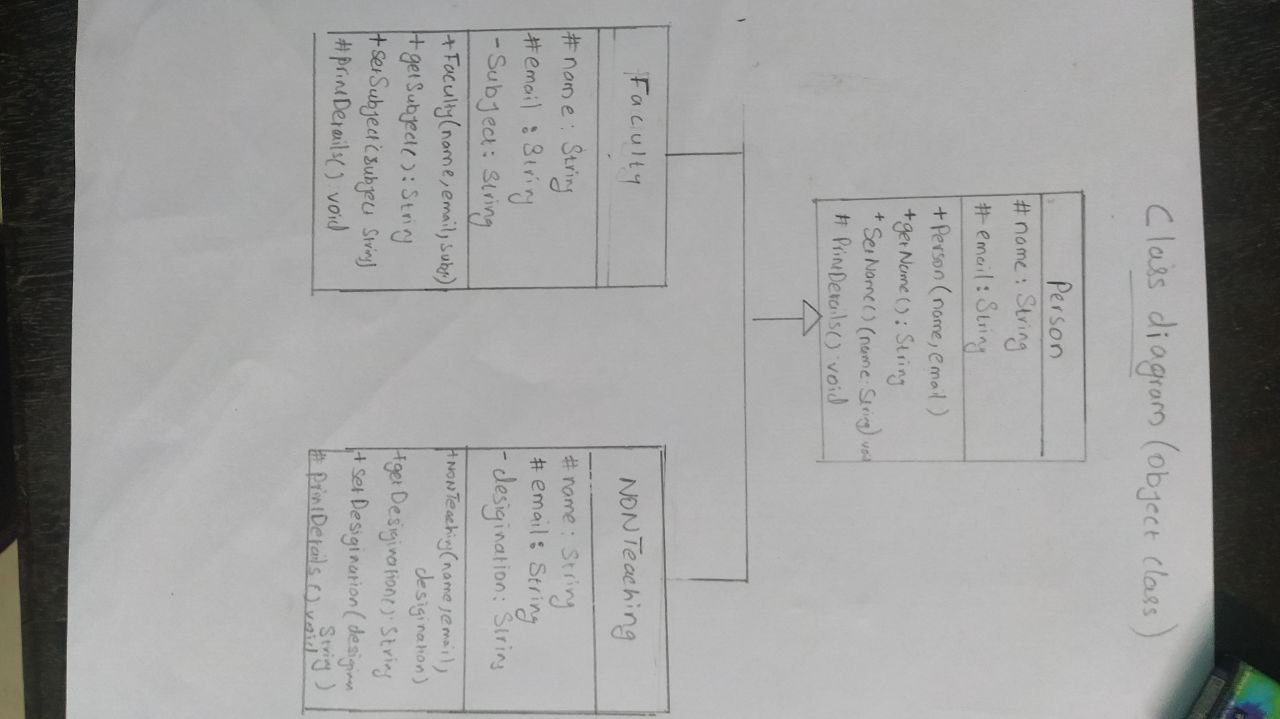 Class diagram (object class)
Person
# name : String
# email : String
+ Person (name, email)
+ getName () : String
+ SetName () (name : String) void
# PrintDetails () void
Faculty
# name : String
# email : String
- Subject : String
+ Faculty (name, email, subj)
+ getSubject () : String
+ setSubject (subject String)
# printDetails () void
NONTeaching
# name : String
# email : String
- desigination : String
+ NONTeaching (name, email,
desigination)
+ getDesigination () : String
+ setDesigination (
String )
# PrintDetails () void